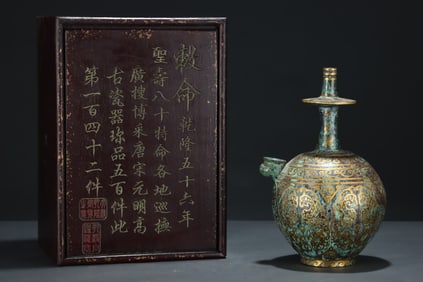 敕命乾隆五十六年
聖壽八十特命各地巡撫
廣搜博采唐宋元明高
古瓷器珍品五百件此
第一百四十二件